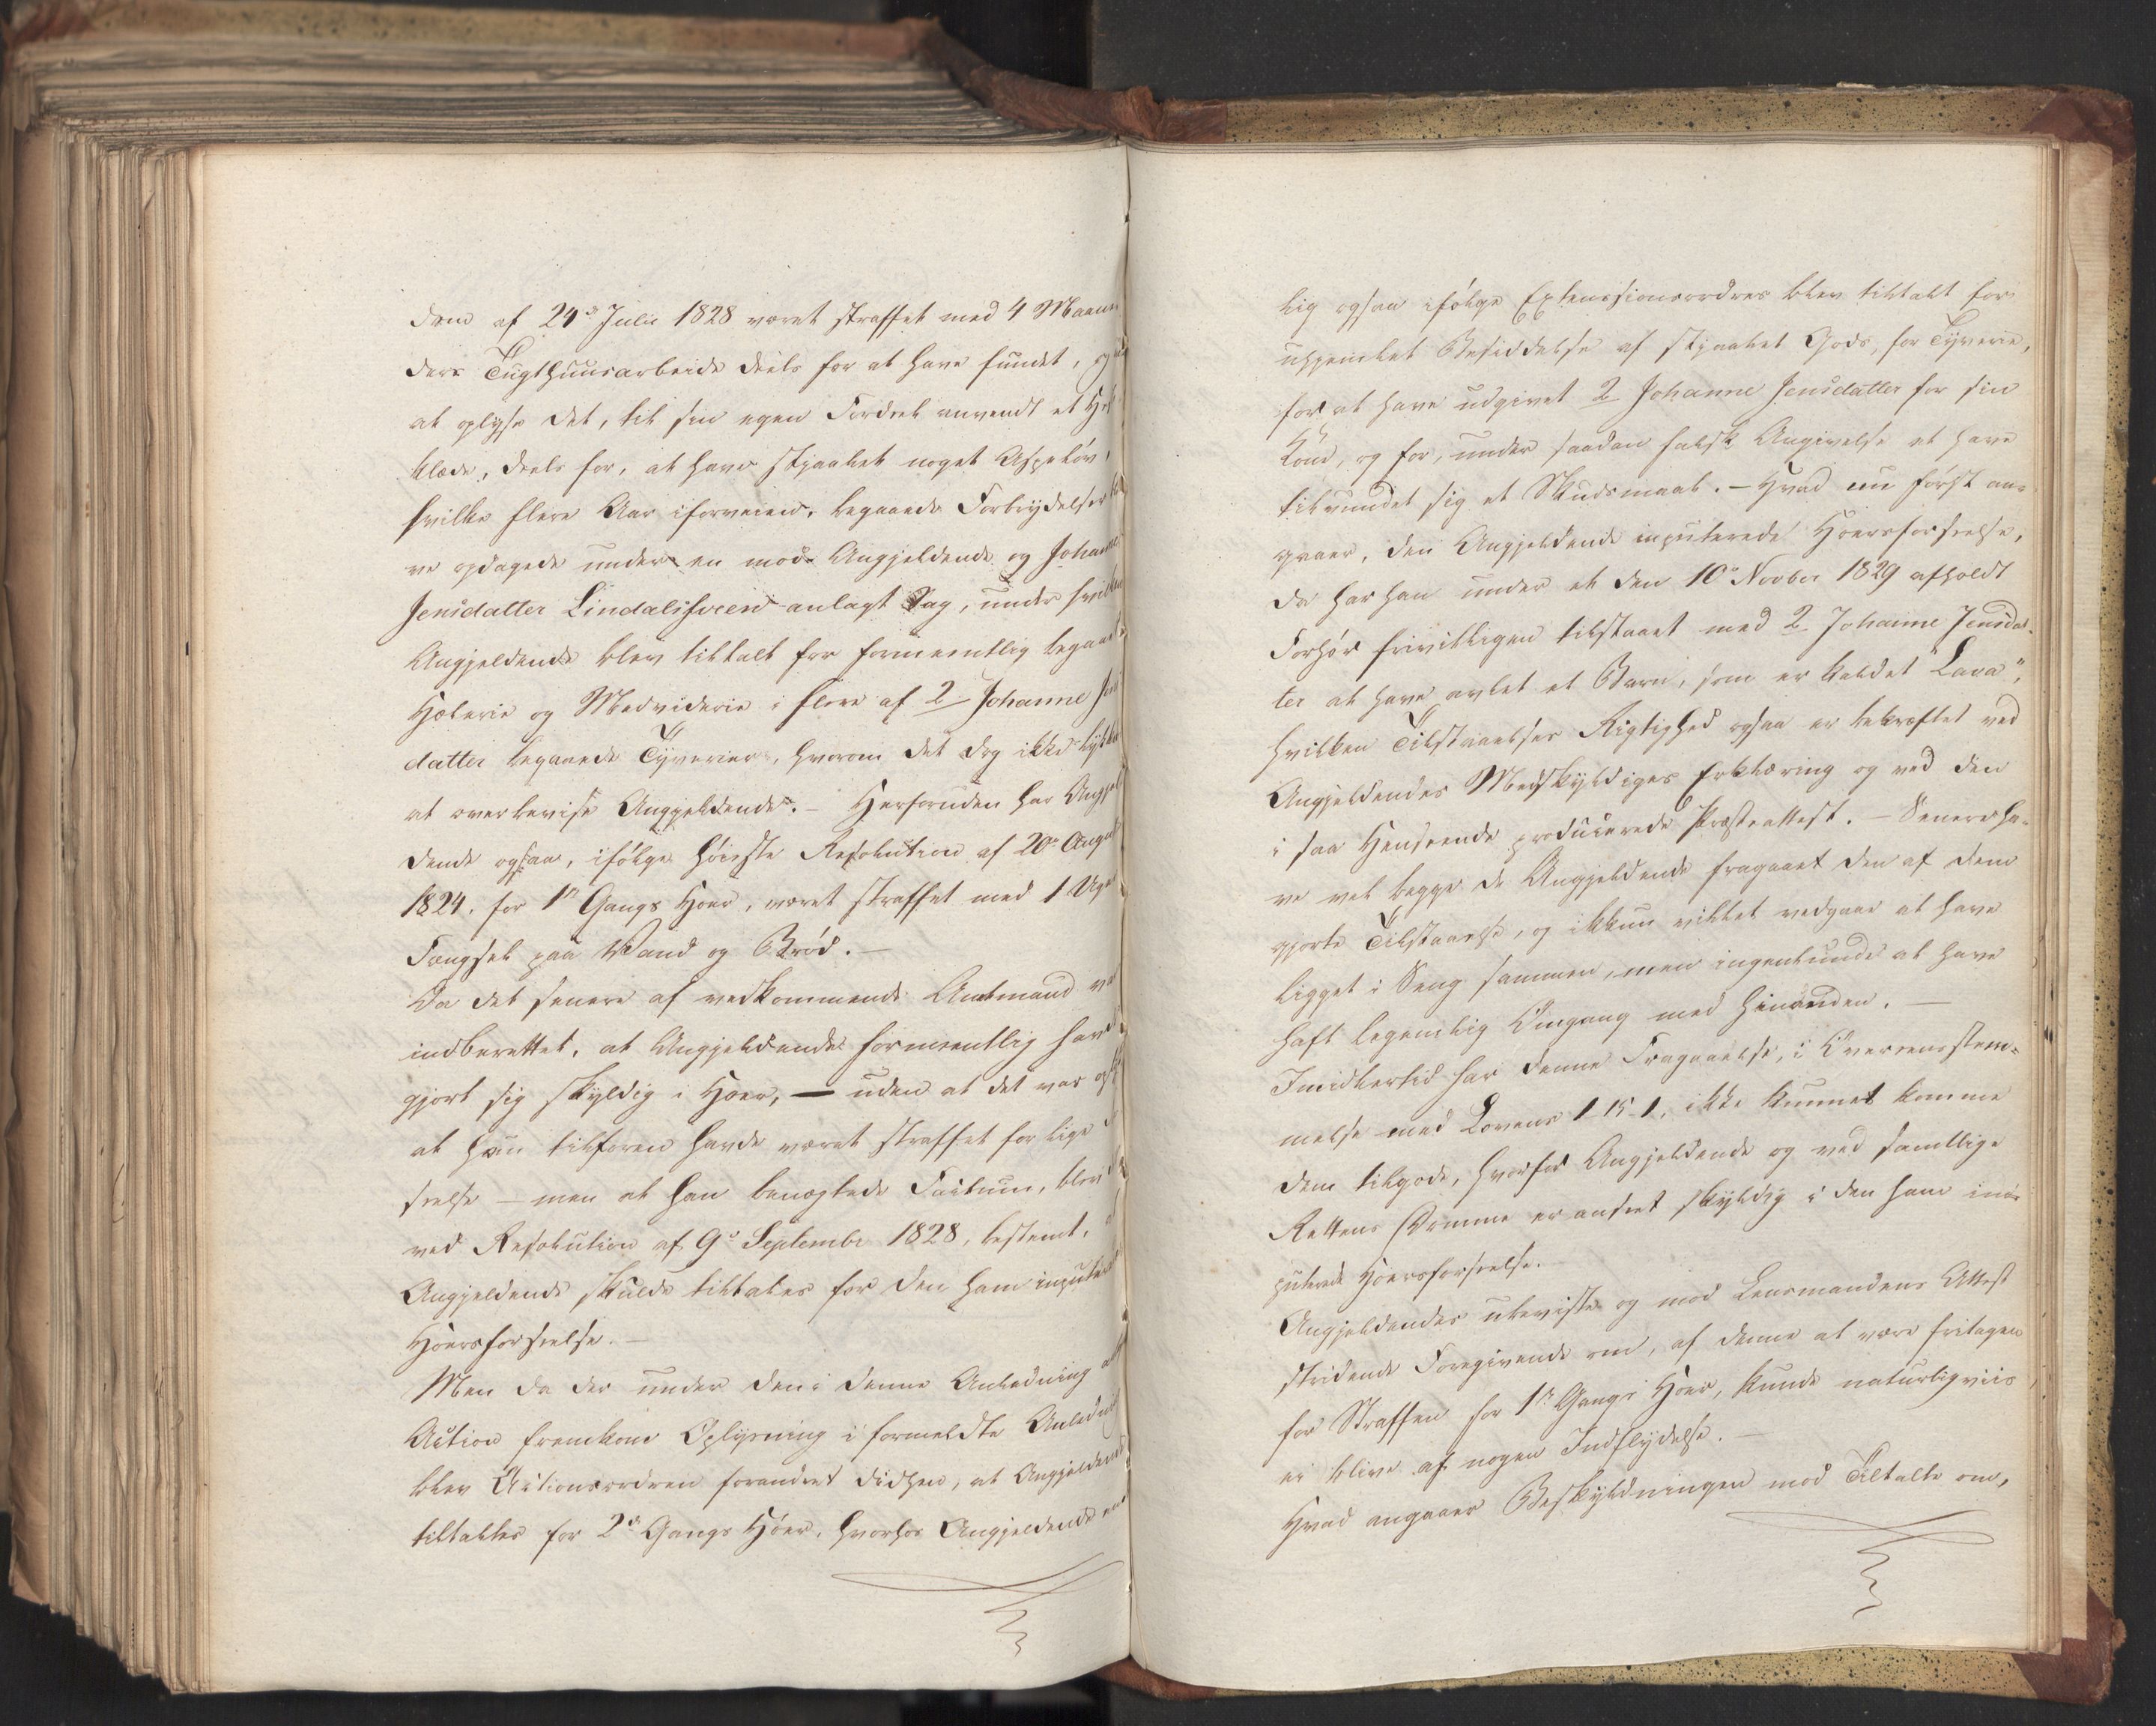 dom af 24de Julii 1828 været straffet med 4 Maane
ders Tugthuusarbeide deels for at have fundet, og
at oplyse det, til sin egen Fordeel anvendt et
klæde, deels for, at have stjaalet noget Aspeløv,
hvilke flere Aar iforveien, begaaede Forbrydelser
ve opdagede under en mod Angjeldende og Johanne
Jensdatter Lindalishveen anlagt Sag, under hvilken
Angjeldende blev tiltalt for formeentlig begaaet
Hæleri og Medvideri i flere af 2 Johanne Jens
datter begaaede Tyverier, hvorom det dog ikke lykke
at overbevise Angjeldende. – Herforuden har Angjel
dende ogsaa, ifølge høieste Resolution af 20de August
1824, for 1ste Gangs Hoer, været straffet med 1 Uges
Fængsel paa Vand og Brød. –
Da det senere af vedkommende Amtmand var
indberettet, at Angjeldende formeentlig havde
gjort sig skyldig i Hoer, – uden at det var
at han tilforen havde været straffet for lige
seelse – men at han benægtede Factum, blev
ved Resolution af 9de September 1828, bestemt,
Angjeldende skulde tiltales for den ham imputerede
Hoersforseelse. –
Men da der under den i denne Anledning
Action fremkom Oplysning i formeldte Anledning
blev Actionsordren forandret didhen, at Angjeldende
tiltaltes for 2den Gangs Hoer, hvorhos Angjeldende
lig ogsaa ifølge Extensionsordrer blev tiltalt for
uhjemlet Besiddelse af stjaalet Gods, for Tyverie,
for at have udgivet 2 Johanne Jensdatter for sin
Kone, og for, under saadan falsk Angivelse at have
tilvundet sig et Skudsmaal. – Hvad nu først an-
gaaer, den Angjeldende imputerede Hoersforseelse,
da har han under et den 10de Novber 1829 afholdt
Forhør frivilligen tilstaaet med 2 Johanne Jensdat-
ter at have avlet et Barn, som er kaldet "Lara",
hvilken Tilstaaelses Rigtighed ogsaa er bekræftet ved
Angjeldendes Medskyldiges Erklæring og ved den
i saa Henseende producerede Præsteattest. – Senere ha-
ve vel begge de Angjeldende fragaaet den af dem
gjorte Tilstaaelse, og ikkun villet vedgaae at have
ligget i Seng sammen, men ingenlunde at have
haft legemlig Omgang med hinanden. –
Imidlertid har denne Fragaaelse, i Overeensstem-
melse med Lovens 1-15-1, ikke kunnet komme
dem tilgode, hvorfor Angjeldende og ved samtlige
Rettens Domme er anseet skyldig i den ham im-
puterede Hoersforseelse.
Angjeldendes ubeviste og mod Lensmandens Attest
stridende Foregivende om, af denne at være fritagen
for Straffen for 1ste Gangs Hoer, kunde naturligviis
ei blive af nogen Indflydelse. –
Hvad angaaer Beskyldningen mod Tiltalte om,